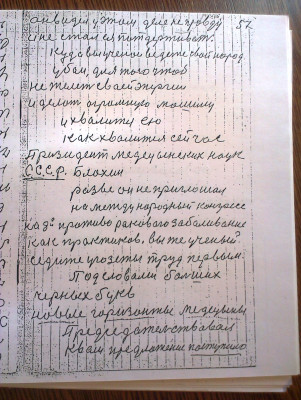 он видел у этом деле неправду 57
и не стал ея поддерживать.
Куда вы ученые ведете свой народ
убои, для того чтоб
не жалет своей энргии
и делат огромную машину
и хвалится ею
как хвалится сейчас
Призидент медецынских наук
С.С.С.Р. Блохин
разве он не приглошал
на международный конгресс
противо ракового заболивание
как практиков, вы же ученый
седите у газеты труд первым.
Под словами больших
черных букв
новые горизонты медецыны
Председательствовал
К вам предложение поступило